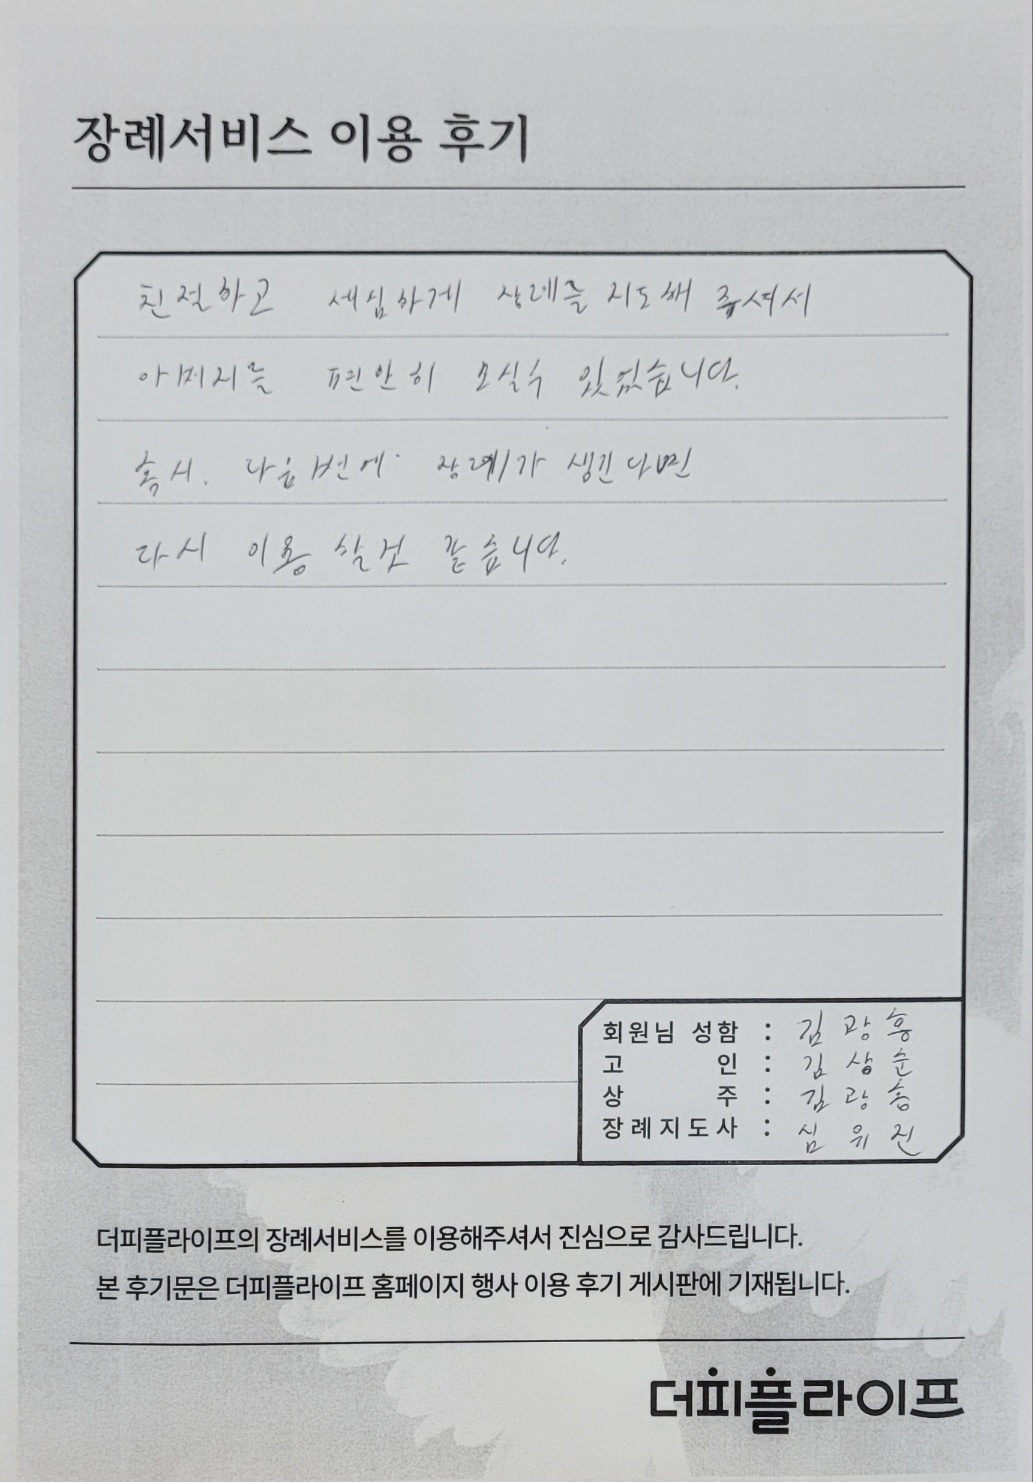 장례서비스 이용 후기
친절하고 세심하게 상례를 지도해 주셔서
아버지를 편안히 모실수 있었습니다.
혹시. 다음번에 장례가 생긴다면
다시 이용할것 같습니다.
회원님 성함 : 김광흥
고 인 : 김상순
상 주 : 김광흥
장례지도사 : 심위진
더피플라이프의 장례서비스를 이용해주셔서 진심으로 감사드립니다.
본 후기문은 더피플라이프 홈페이지 행사 이용 후기 게시판에 기재됩니다.
더피플라이프